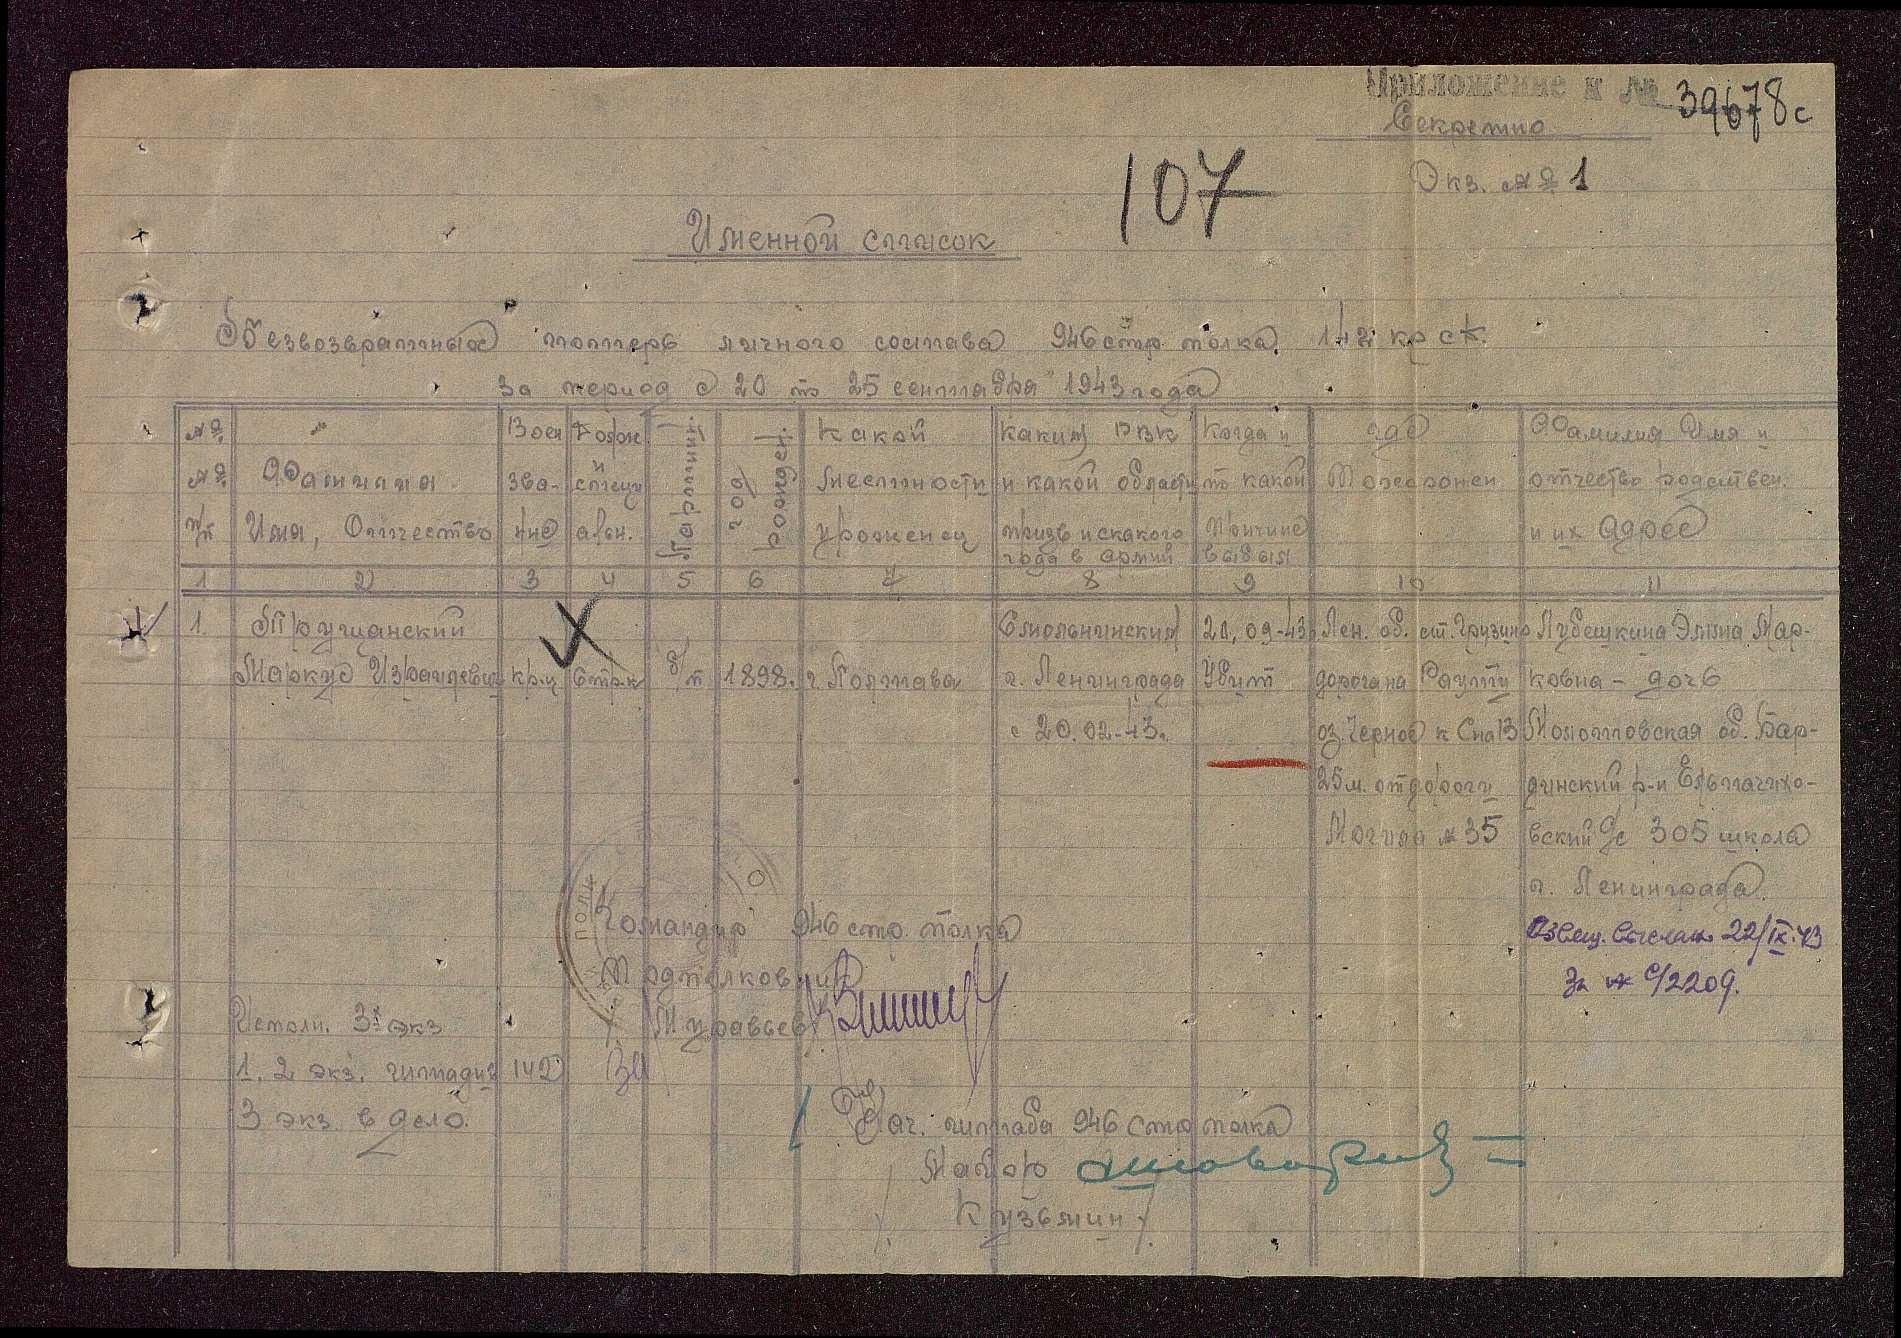 Приложение к № 39678с
Секретно
Экз. № 1
107
Именной список
Безвозвратных потерь личного состава 946 стр. полка. 142 кр с.
за период с 20 по 25 сентября 1943 года
№ № п/п
Фамилия Имя, Отчество
Воен зва-ние
и специ альн.
Партийн.
год рожден.
Какой местности уроженец
Каким РВК и какой области призв и скакого года в армии
Когда и по какой причине выбыл
где Похоронен
Фамилия Имя и отчество родствен. и их адрес
1 2 3 4 5 6 7 8 9 10 11
1. Пружанский Смольнинским 20.09-43 Лен. об. ст. Грузино Лубешкина Эмма Мар-
Маркус Израилевич кр-ц Стр-к б/п 1898. г. Полтава г. Ленинграда Убит дорога на ковна - дочь
с 20.02-43. оз. Черное к Молотовская об. Бар-
25 м. от дороги динский р-н
Могила № 35 вский д/с 305 школа
г. Ленинграда
Извещ. выслан 22/IX-43
За № с/2209.
Командир 946 стр. полка
Подполковник
Муравьев
Исполн. 3х экз
1. 2 экз. штадив 142
3 экз. в дело.
Нач. штаба 946 стр полка
Майор
/Кузьмин/